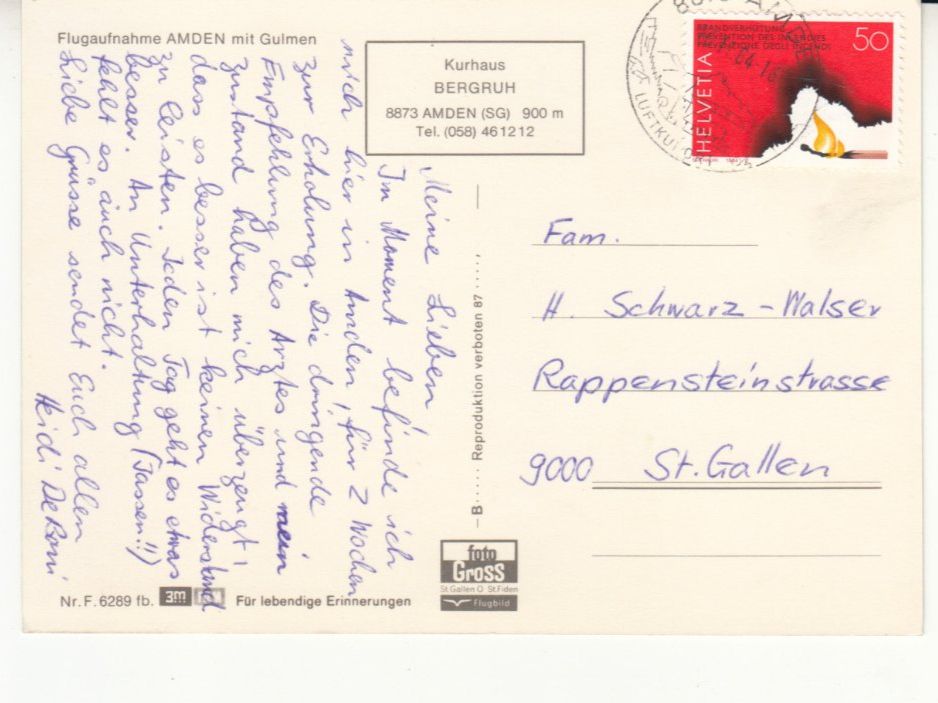 Flugaufnahme AMDEN mit Gulmen
Kurhaus
BERGRUH
8873 AMDEN (SG) 900 m
Tel. (058) 461212
BRANDVERHÜTUNG
PREVENTION DES INCENDIES
PREVENZIONE DEGLI INCENDI
50
HELVETIA
LUFTKU
Meine Lieben!
Im Moment befinde ich
mich hier in Amden, für 2 Wochen
zur Erholung. Die dringende
Empfehlung des Arztes und mein
Zustand haben mich überzeugt,
dass es besser ist keinen Widerstand
zu leisten. Jeden Tag geht es etwas
besser. An Unterhaltung (Jassen!!)
fehlt es auch nicht.
Liebe Grüsse sendet Euch allen
Heidi
B..... Reproduktion verboten 87.....
Fam.
H. Schwarz-Walser
Rappensteinstrasse
9000 St.Gallen
foto
Gross
St.Gallen O St.Fiden
Flugbild
Nr. F. 6289 fb. 3m Für lebendige Erinnerungen